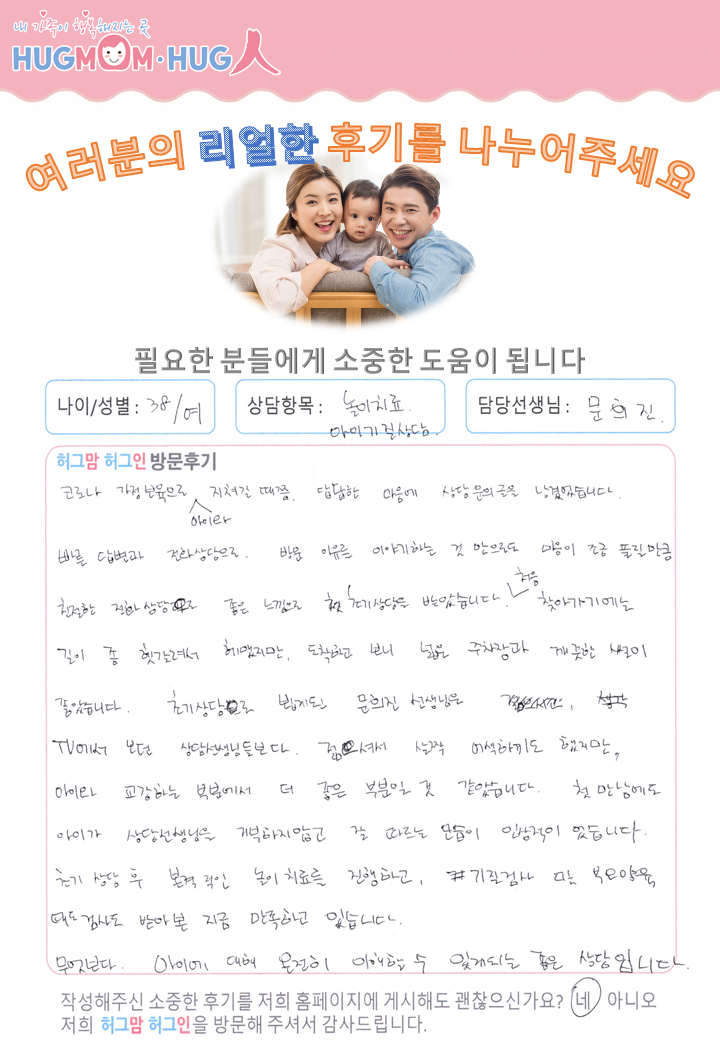 내 가족이 행복해지는 곳
HUGMOM·HUG人
여러분의 리얼한 후기를 나누어주세요
필요한 분들에게 소중한 도움이 됩니다
나이/성별 : 38/여
상담항목 : 놀이치료.
아이기질상담.
담당선생님 : 문희진.
허그맘 허그인 방문후기
코로나 가정보육으로 지쳐갈 때쯤. 답답한 마음에 상담문의글을 남겼었습니다.
아이와
빠른 답변과 전화상담으로. 방문 이유를 이야기하는 것 만으로도 마음이 조금 풀릴만큼
친절한 전화상담으로 좋은 느낌으로 첫 초기상담을 받았습니다. 처음 찾아가기에는
길이 좀 헷갈려서 헤맸지만, 도착하고 보니 넓은 주차장과 깨끗한 시설이
좋았습니다. 초기상담으로 뵙게된 문희진 선생님은
TV에서 보던 상담선생님들보다. 젊으셔서 살짝 어색하기도 했지만,
아이와 교감하는 부분에서 더 좋은 부분일 것 같았습니다. 첫 만남에도
아이가 상담선생님을 거부하지않고 잘 따르는 모습이 인상적이 었습니다.
초기 상담 후 본격적인 놀이치료를 진행하고, #기질검사 및 부모양육
태도검사도 받아본 지금 만족하고 있습니다.
무엇보다. 아이에 대해 온전히 이해할 수 있게되는 좋은 상담입니다.
작성해주신 소중한 후기를 저희 홈페이지에 게시해도 괜찮으신가요? 네 아니오
저희 허그맘 허그인을 방문해 주셔서 감사드립니다.